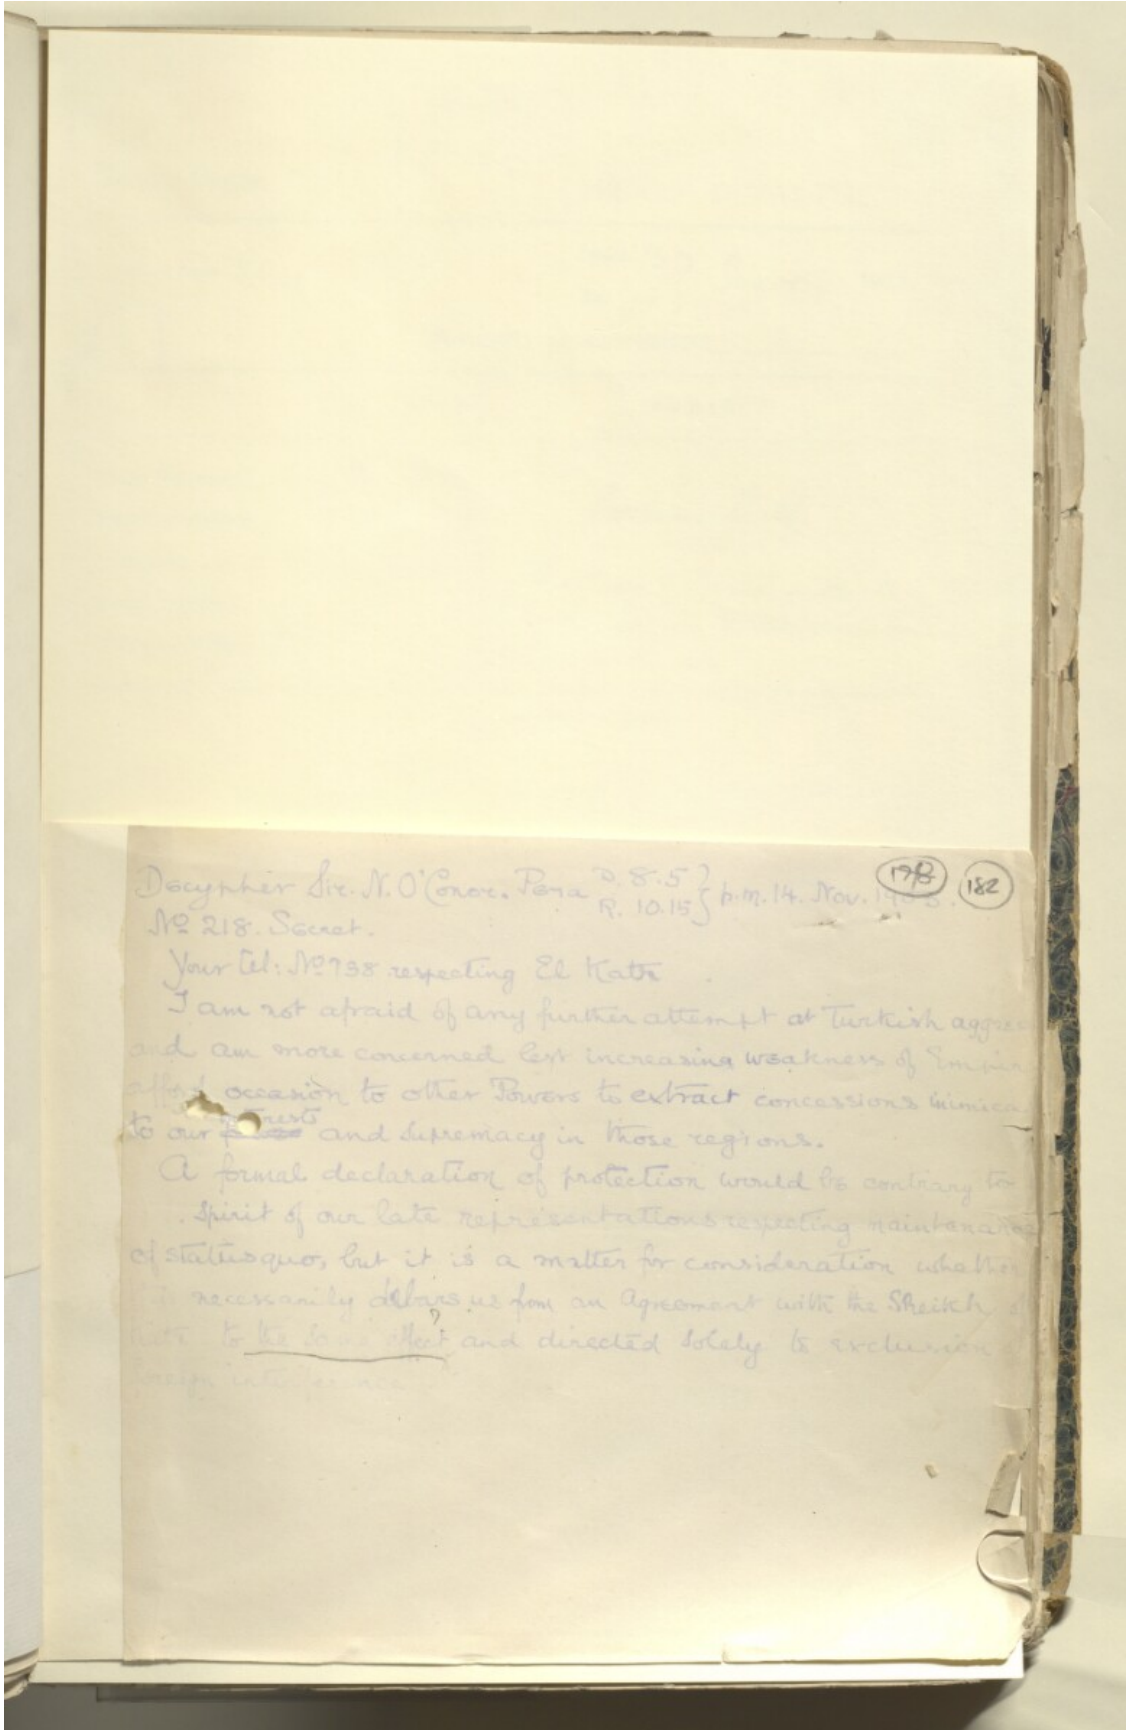 182
Decypher Sir. N. O'Conor. Pera D. 8.5 } p.m. 14. Nov.
R. 10.15
No 218. Secret.
Your tel: No 738 respecting El Katr
I am not afraid of any further attempt at Turkish
and am more concerned lest increasing weakness of
afford occasion to other Powers to extract concessions
to our interests and supremacy in those regions.
A formal declaration of protection would be contrary to
spirit of our late representations respecting maintenance
of status quo, but it is a matter for consideration whether
necessarily debars us from an Agreement with the Sheikh
to the same effect ? and directed solely to exclusion